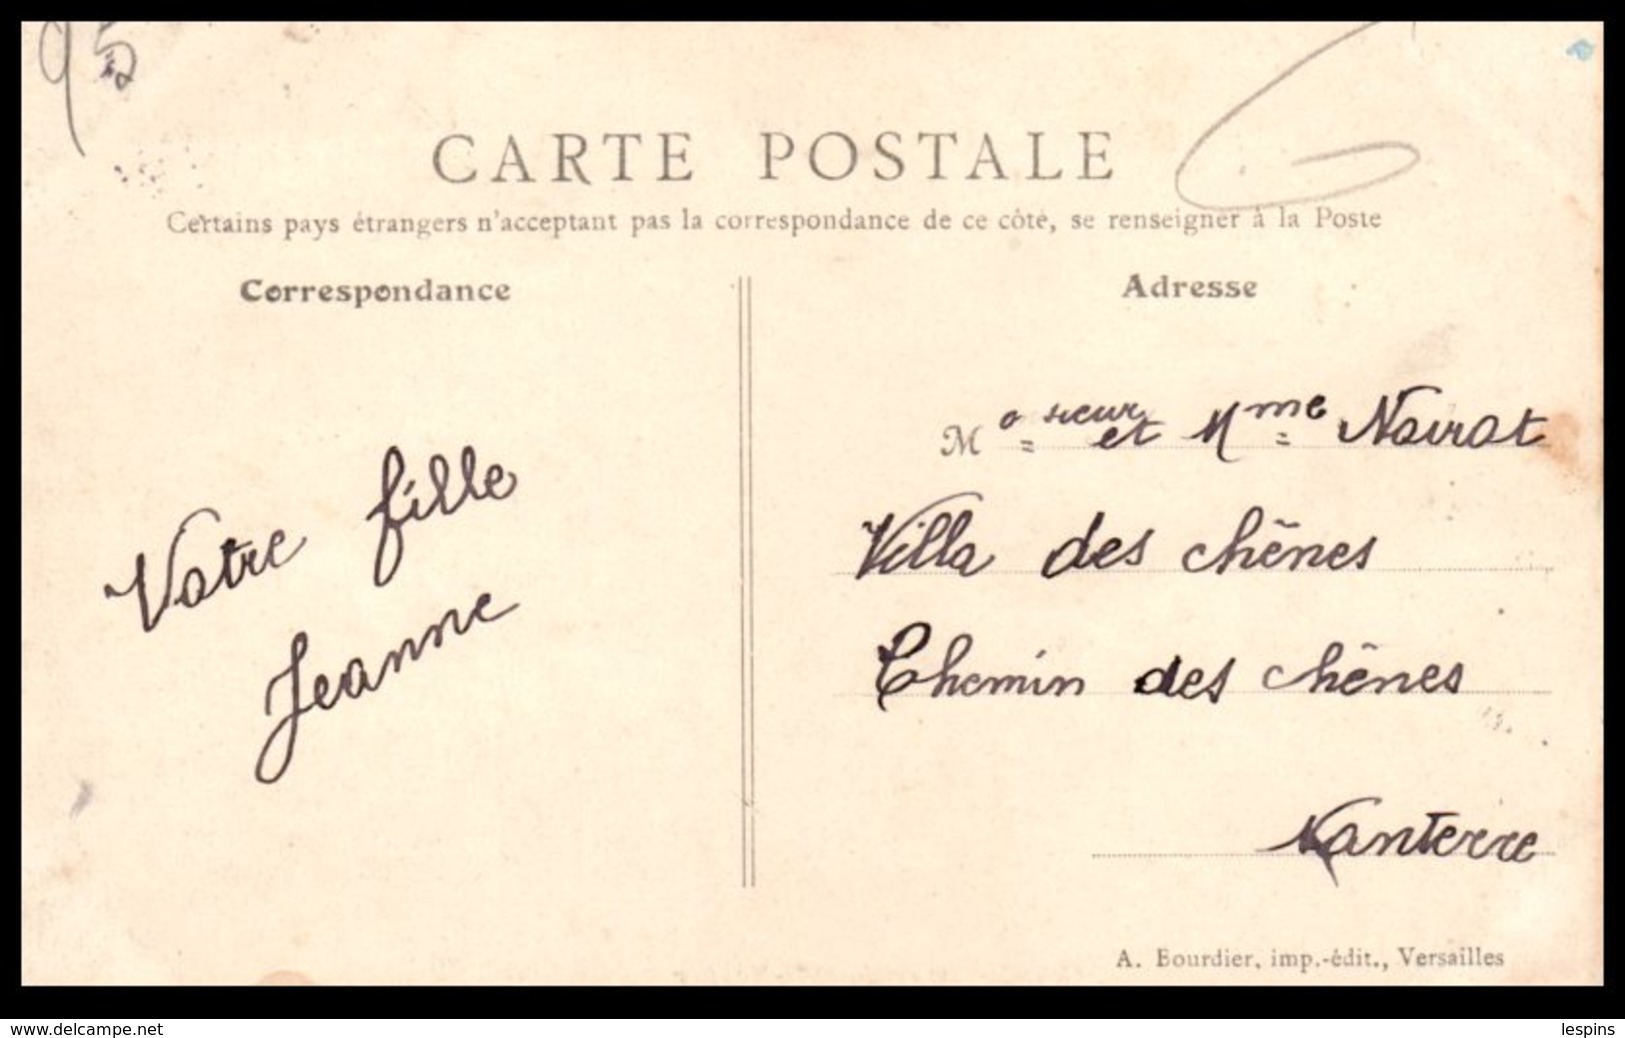 95
CARTE POSTALE
Certains pays étrangers n'acceptant pas la correspondance de ce côté, se renseigner à la Poste
Correspondance
Adresse
Votre fille
Jeanne
Mosieur et Mme Noirot
Villa des chênes
Chemin des chênes
Nanterre
A. Bourdier, imp.-édit., Versailles
www.delcampe.net
lespins